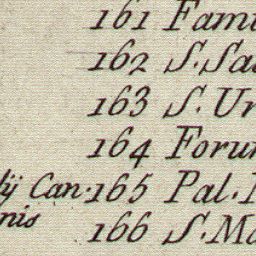 161 Fam
162 S. Sa
163 S. Ur
164 Foru
ij Can. 165 Pal.
nis 166 S. Ma